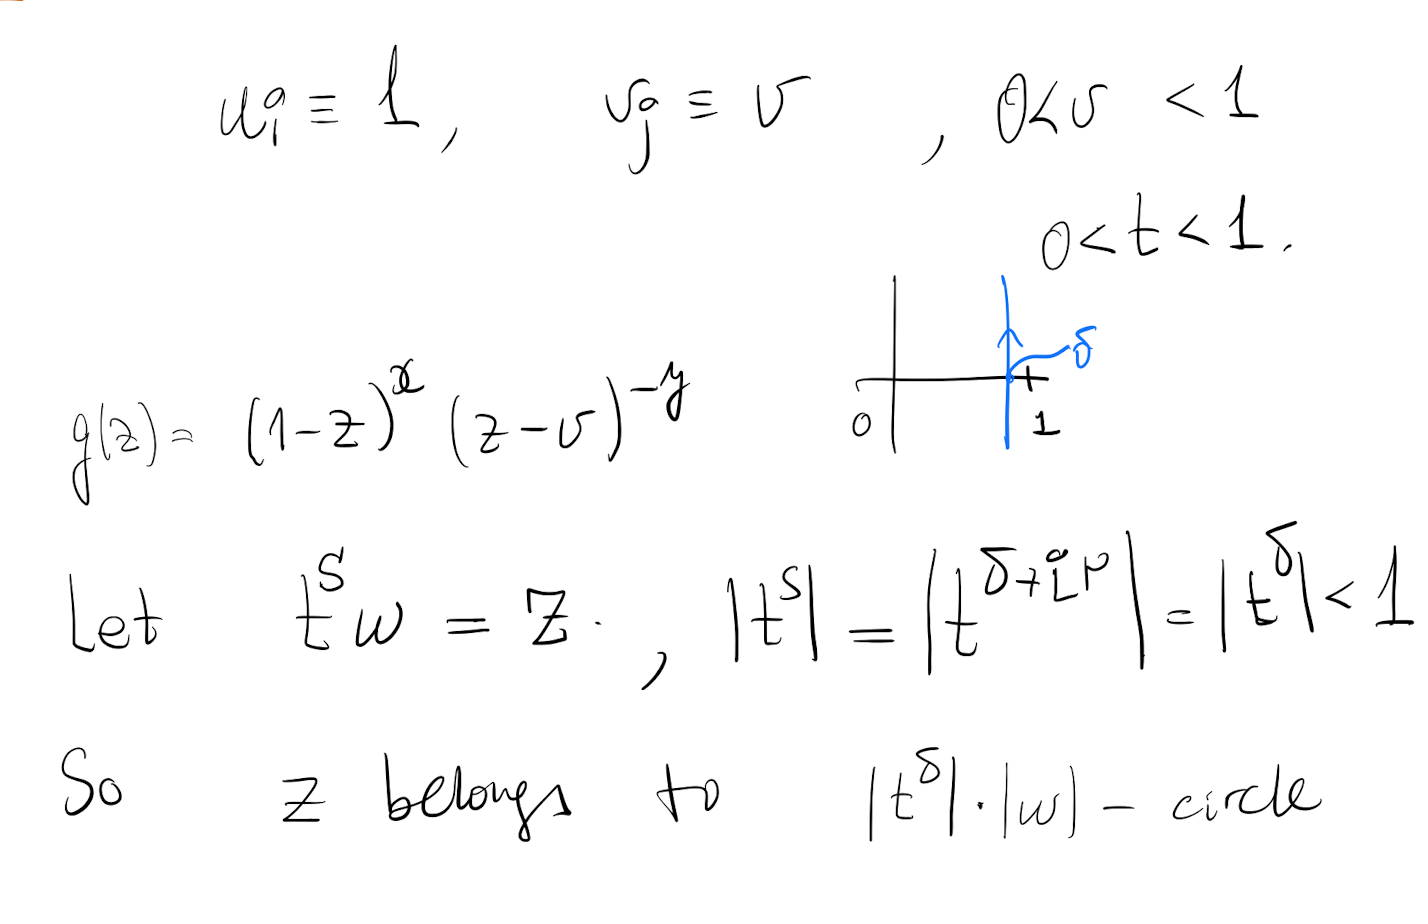 uᵢ ≡ 1, vⱼ ≡ v, 0<v <1
0<t<1.
δ
0 1
g(z)= (1-z)^x (z-v)^{-y}
Let t^s w = z. , |t^s| = |t^{δ+ir}| = |t^δ| < 1
So z belongs to |t^δ|·|w| - circle